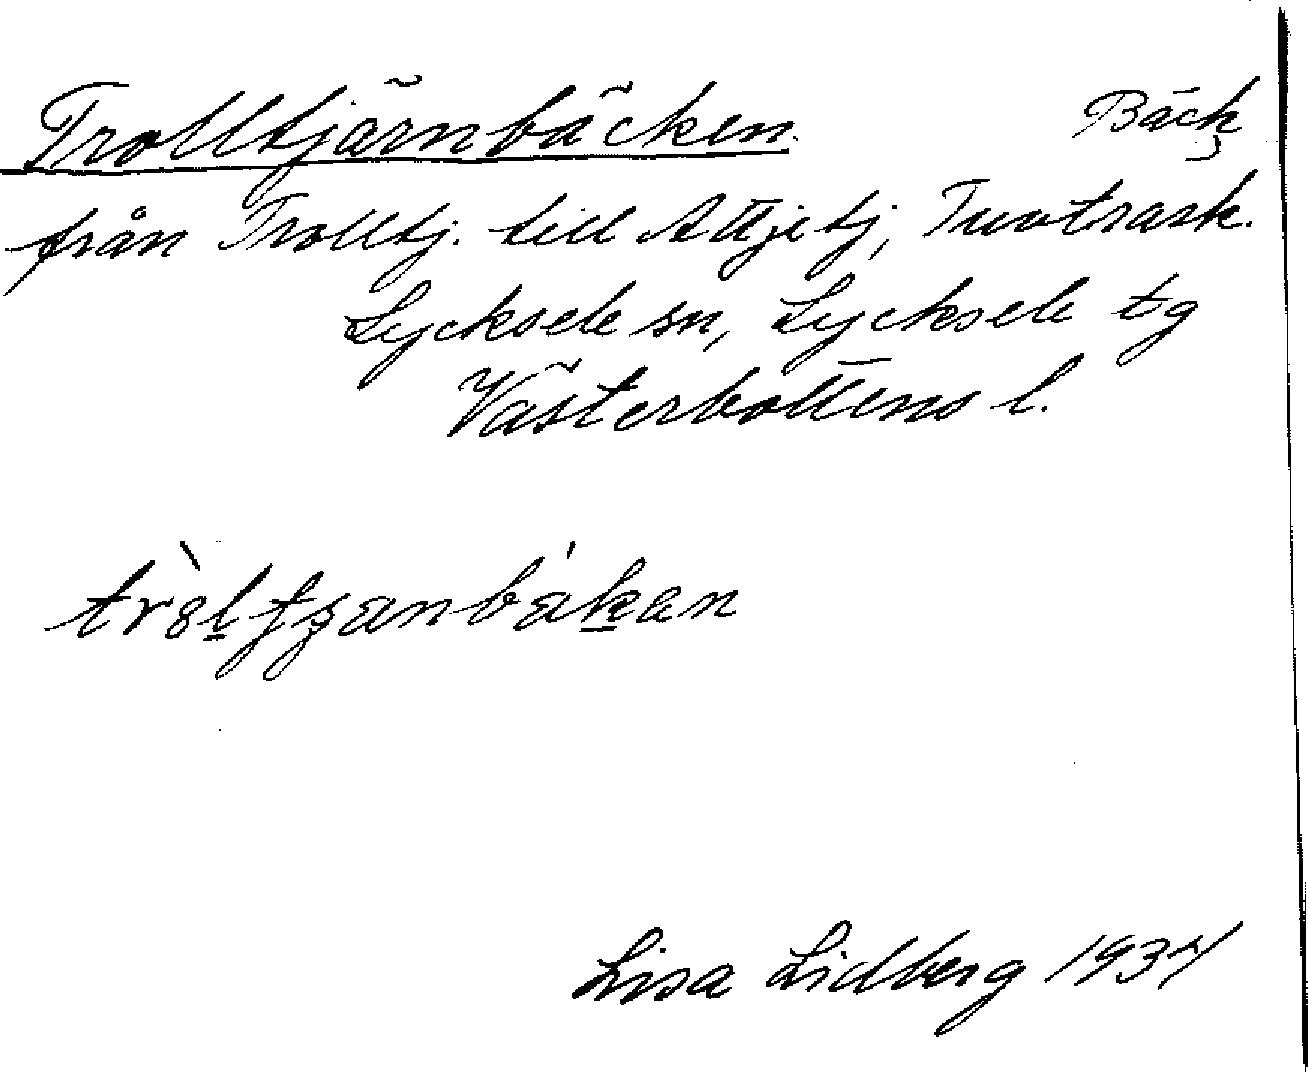 Trolltjärnbäcken. Bäck
från Trolltj. till Attjetj, Tuvträsk.
Lycksele sn, Lycksele tg
Västerbottens l.
Lisa Lidberg 1937